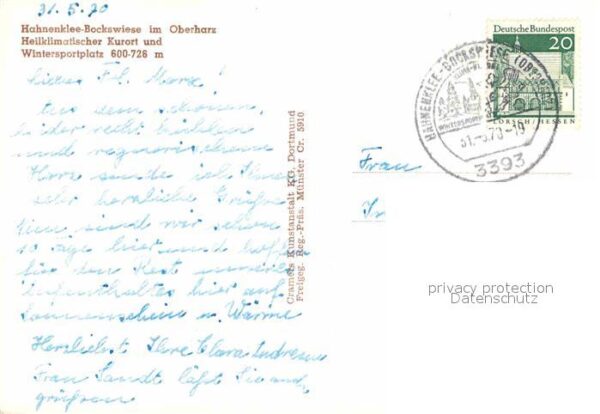 31.5.70
Hahnenklee-Bockswiese im Oberharz
Heilklimatischer Kurort und
Wintersportplatz 600-726 m
Liebes Frl. Marie!
Aus dem schönen,
leider recht kühlen
und regnerischen
Harz sende ich Ihnen
sehr herzliche Grüße.
sind wir schon
10 Tage hier und hoffen
für den Rest unseres
Aufenthaltes hier auf
Sonnenschein u. Wärme
Herzlichst Ihre Clara Andresen
Frau Sandt läßt Sie auch
grüßen
Cramers Kunstanstalt KG, Dortmund
Freigeg. Reg.-Präs. Münster Cr. 5910
Deutsche Bundespost
20
LORSCH/HESSEN
HAHNENKLEE-BOCKSWIESE (OBERHARZ)
WINTERSPORT
31.-5.70-19
3393
Frau
privacy protection
Datenschutz